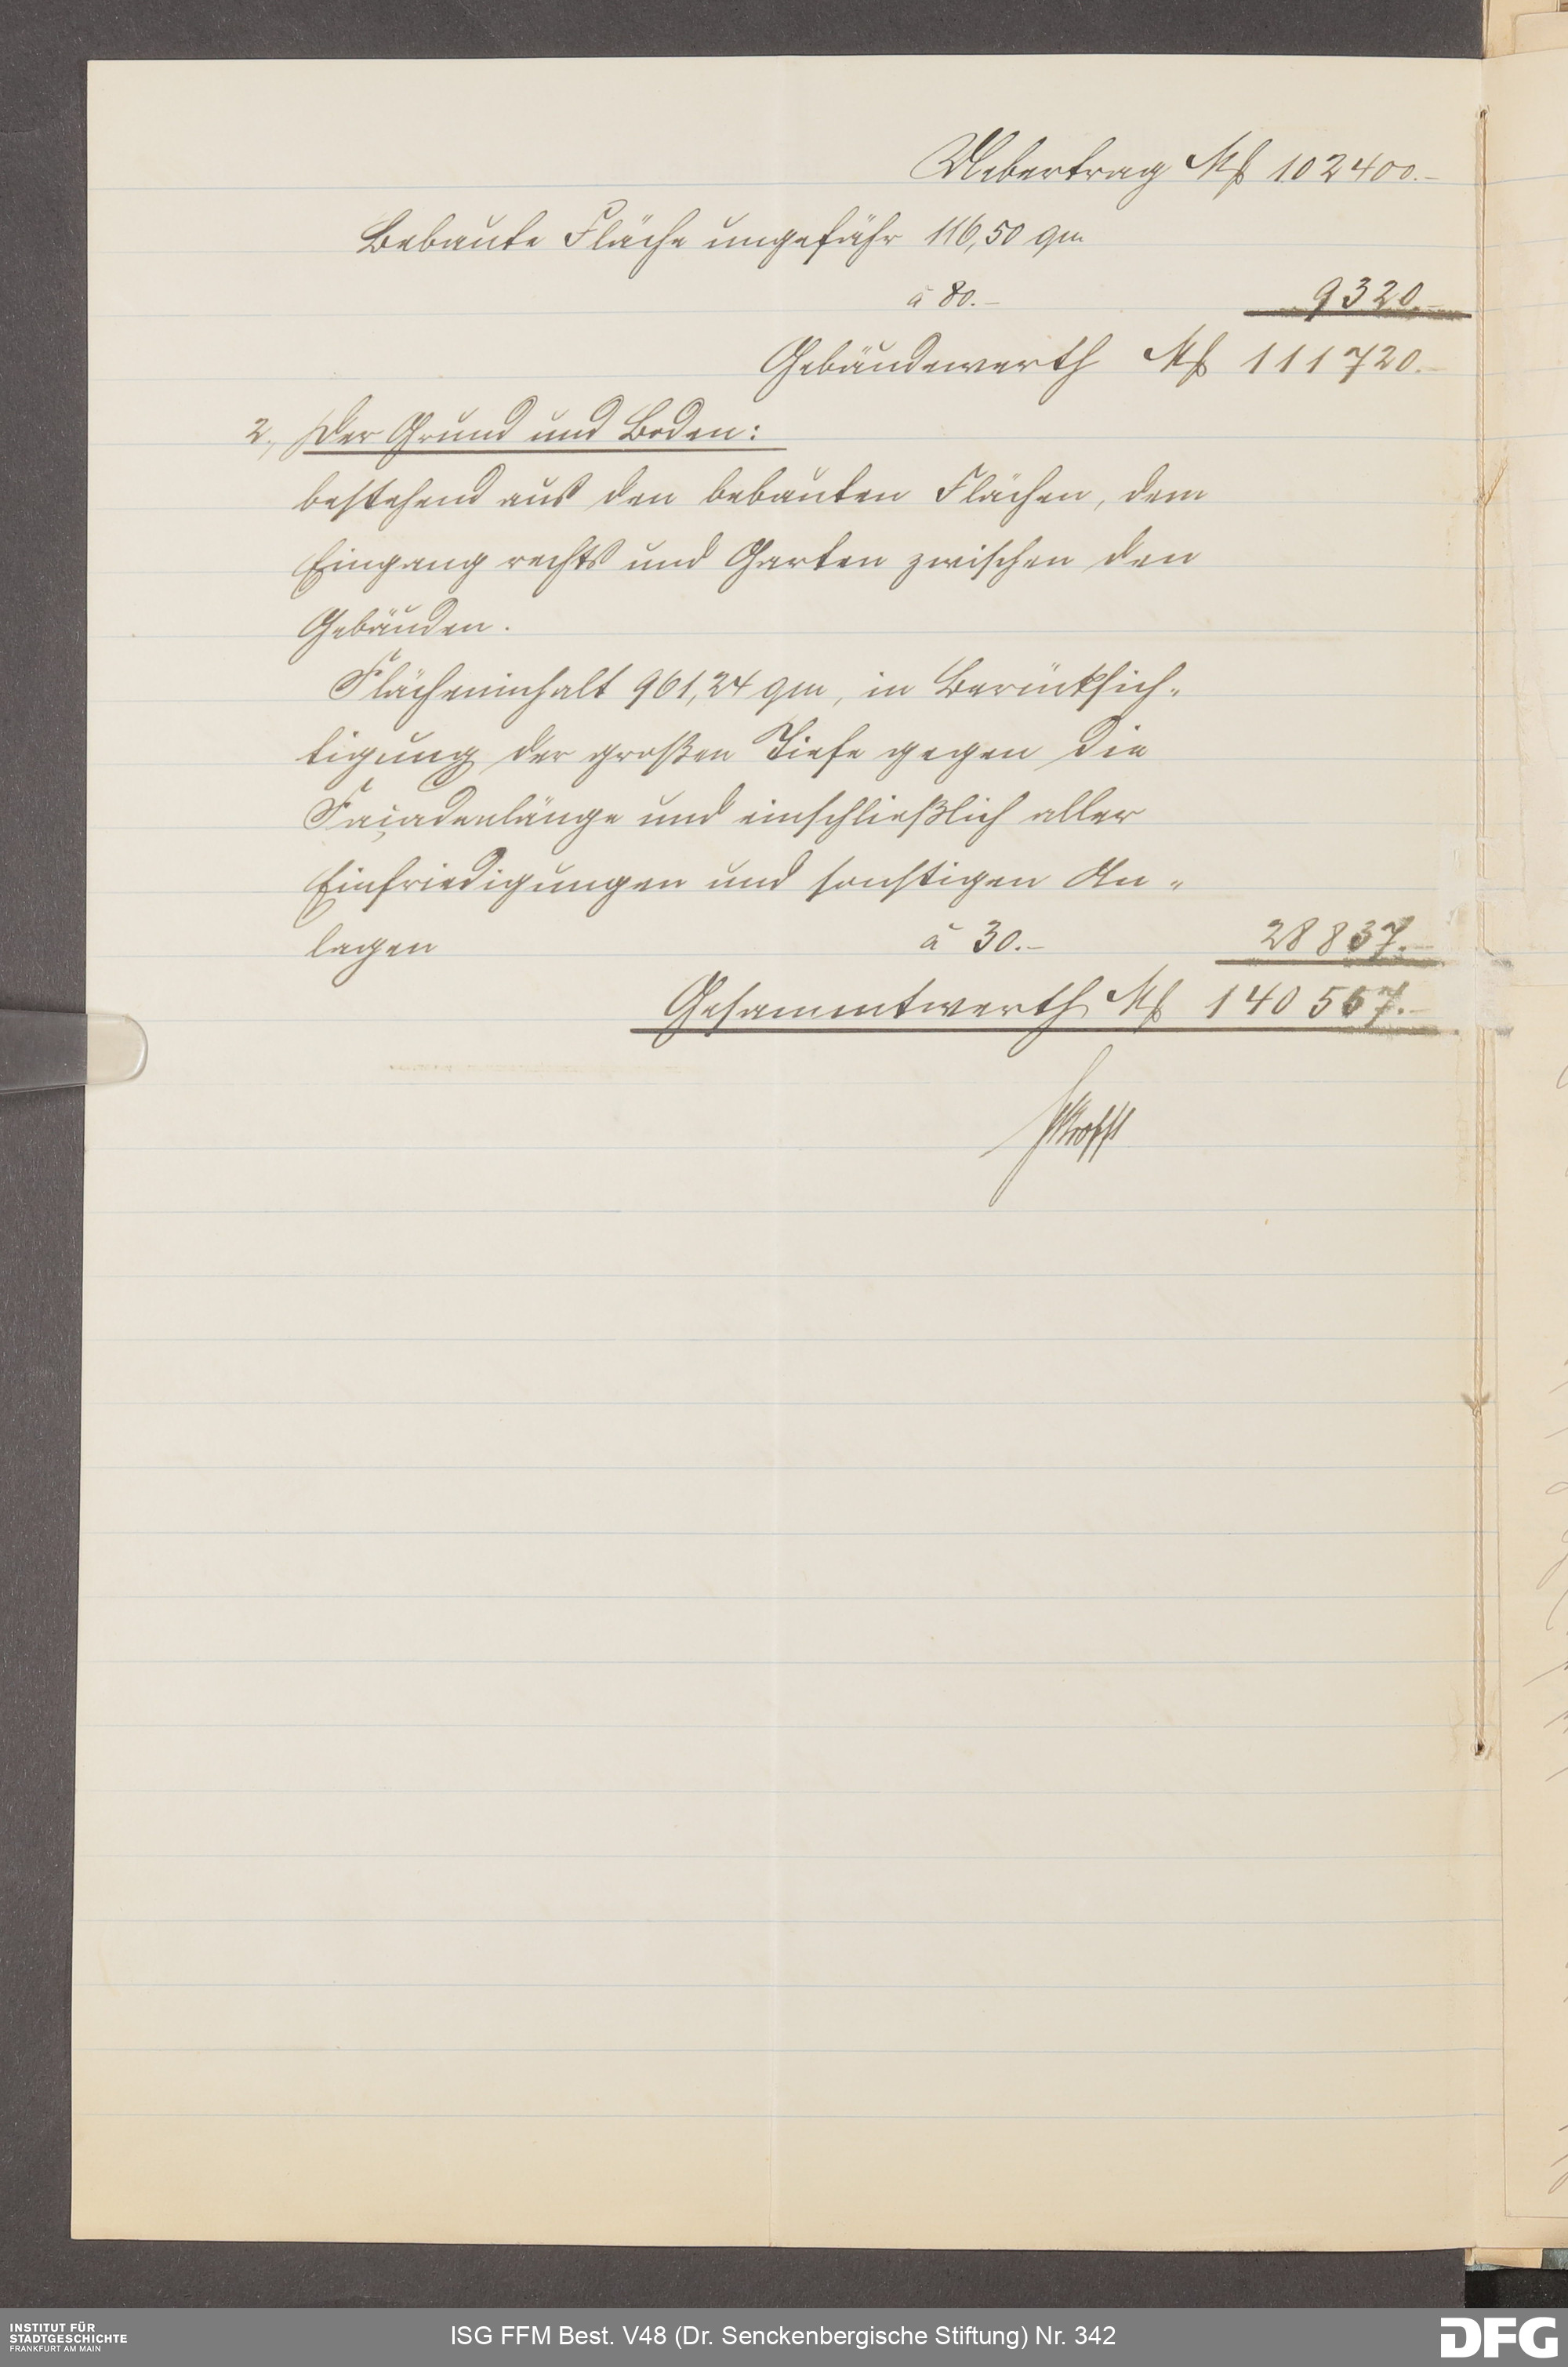 Uebertrag Mk 102400.-
Bebaute Fläche ungefähr 116,50 qm
à 80.- 9320.-
Gebäudewerth Mk 111720.-
2., Der Grund und Boden:
bestehend aus den bebauten Flächen, dem
Eingang rechts und Garten zwischen den
Gebäuden.
Flächeninhalt 961,24 qm, in Berücksich-
tigung der großen Tiefe gegen die
Façadenlänge und einschließlich aller
Einfriedigungen und sonstigen An-
lagen à 30.- 28837.-
Gesammtwerth Mk 140557.-
INSTITUT FÜR
STADTGESCHICHTE
FRANKFURT AM MAIN
ISG FFM Best. V48 (Dr. Senckenbergische Stiftung) Nr. 342
DFG